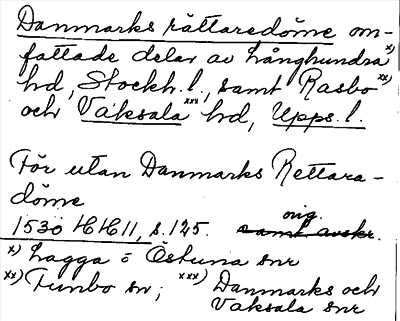 Danmarks rättaredöme om-
fattade delar av Långhundra x)
hd, Stockh. l., samt Rasbo xx)
och Vaksala xxx) hd, Upps. l.
För utan Danmarks Rettara-
döme
1530 HH 11, s. 125. orig. samt avskr.
x) Lagga o Östuna snr
xx) Funbo sn; xxx) Danmarks och
Vaksala snr